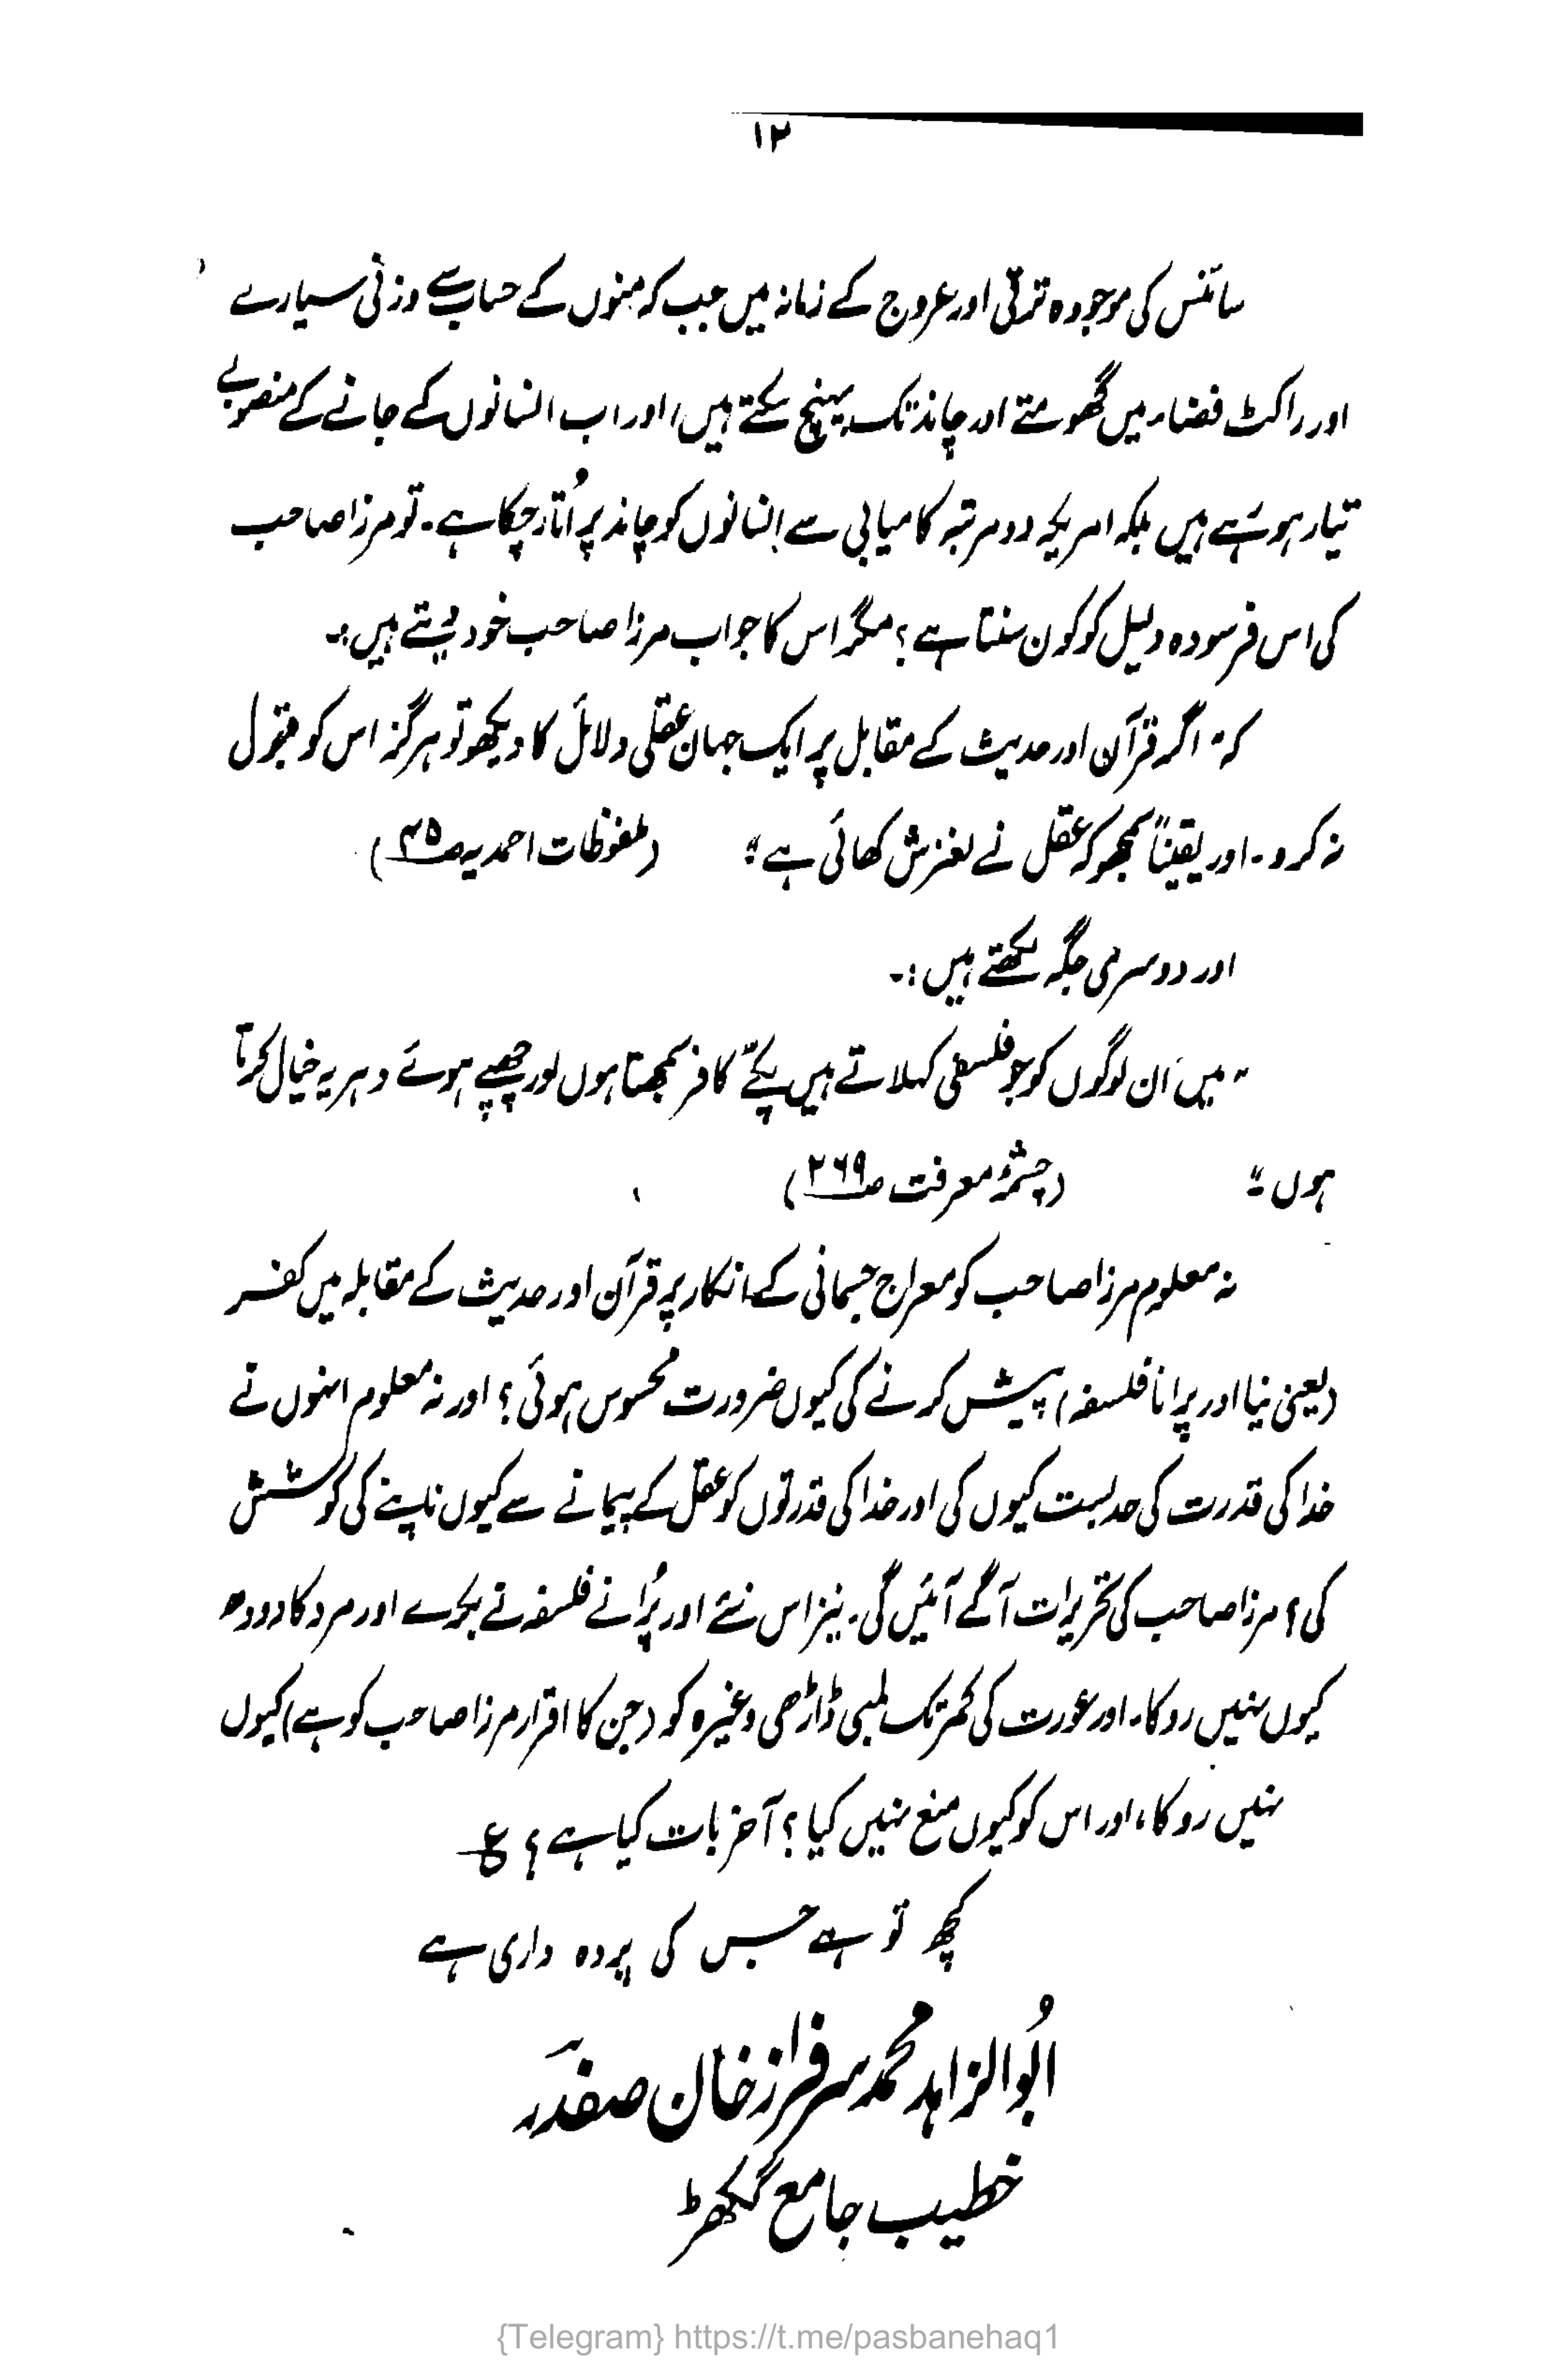 ۱۲
سائنس کی موجودہ ترقی اور عروج کے زمانہ میں جب کہ منوں کے حساب سے وزنی سیارے
اور راکٹ فضاء میں گھومتے اور چاند تک پہنچ سکتے ہیں، اور اب انسانوں کے جانے کے منصوبے
تیار ہو رہے ہیں بلکہ امریکہ دو مرتبہ کامیابی سے انسانوں کو چاند پر اُتار چکا ہے۔ تو مرزا صاحب
کی اس فرسودہ دلیل کو کون سنتا ہے؟ مگر اس کا جواب مرزا صاحب خود دیتے ہیں:۔
کہ "اگر قرآن اور حدیث کے مقابل پر ایک جہان عقلی دلائل کا دیکھو تو ہرگز اس کو قبول
نہ کرو۔ اور یقیناً سمجھو کہ عقل نے لغزش کھائی ہے" (ملفوظات احمدیہ ص۴۵)
اور دوسری جگہ لکھتے ہیں:۔
"میں ان لوگوں کو جو فلسفی کہلاتے ہیں پکے کافر سمجھتا ہوں اور چھپے ہوئے دہریہ خیال کرتا
ہوں" (چشمۂ معرفت ص۲۶۹)
نہ معلوم مرزا صاحب کو معراج جسمانی کے انکار پر قرآن اور حدیث کے مقابلہ میں کفر
(یعنی نیا اور پرانا فلسفہ) پیش کرنے کی کیوں ضرورت محسوس ہوئی؟ اور نہ معلوم انہوں نے
خدا کی قدرت کی حد بست کیوں کی اور خدا کی قدرتوں کو عقل کے پیمانے سے کیوں ناپنے کی کوشش
کی؟ مرزا صاحب کی تحریرات آگے آئیں گی۔ نیز اس نئے اور پُرانے فلسفہ نے بکرے اور مرد کا دودھ
کیوں نہیں روکا۔ اور عورت کی کمر تک لمبی ڈاڑھی وغیرہ کو (جن کا اقرار مرزا صاحب کو ہے) کیوں
نہیں روکا، اور اس کو کیوں منع نہیں کیا؟ آخر بات کیا ہے؟ ع
کچھ تو ہے جس کی پردہ داری ہے
ابُوالزاہد محمد سرفراز خان صفدر
خطیب جامع گکھڑ
{Telegram} https://t.me/pasbanehaq1